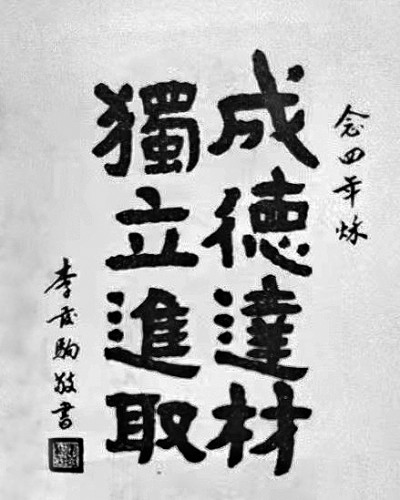 念四年秌
成德達材
獨立進取
李茂駒敬書